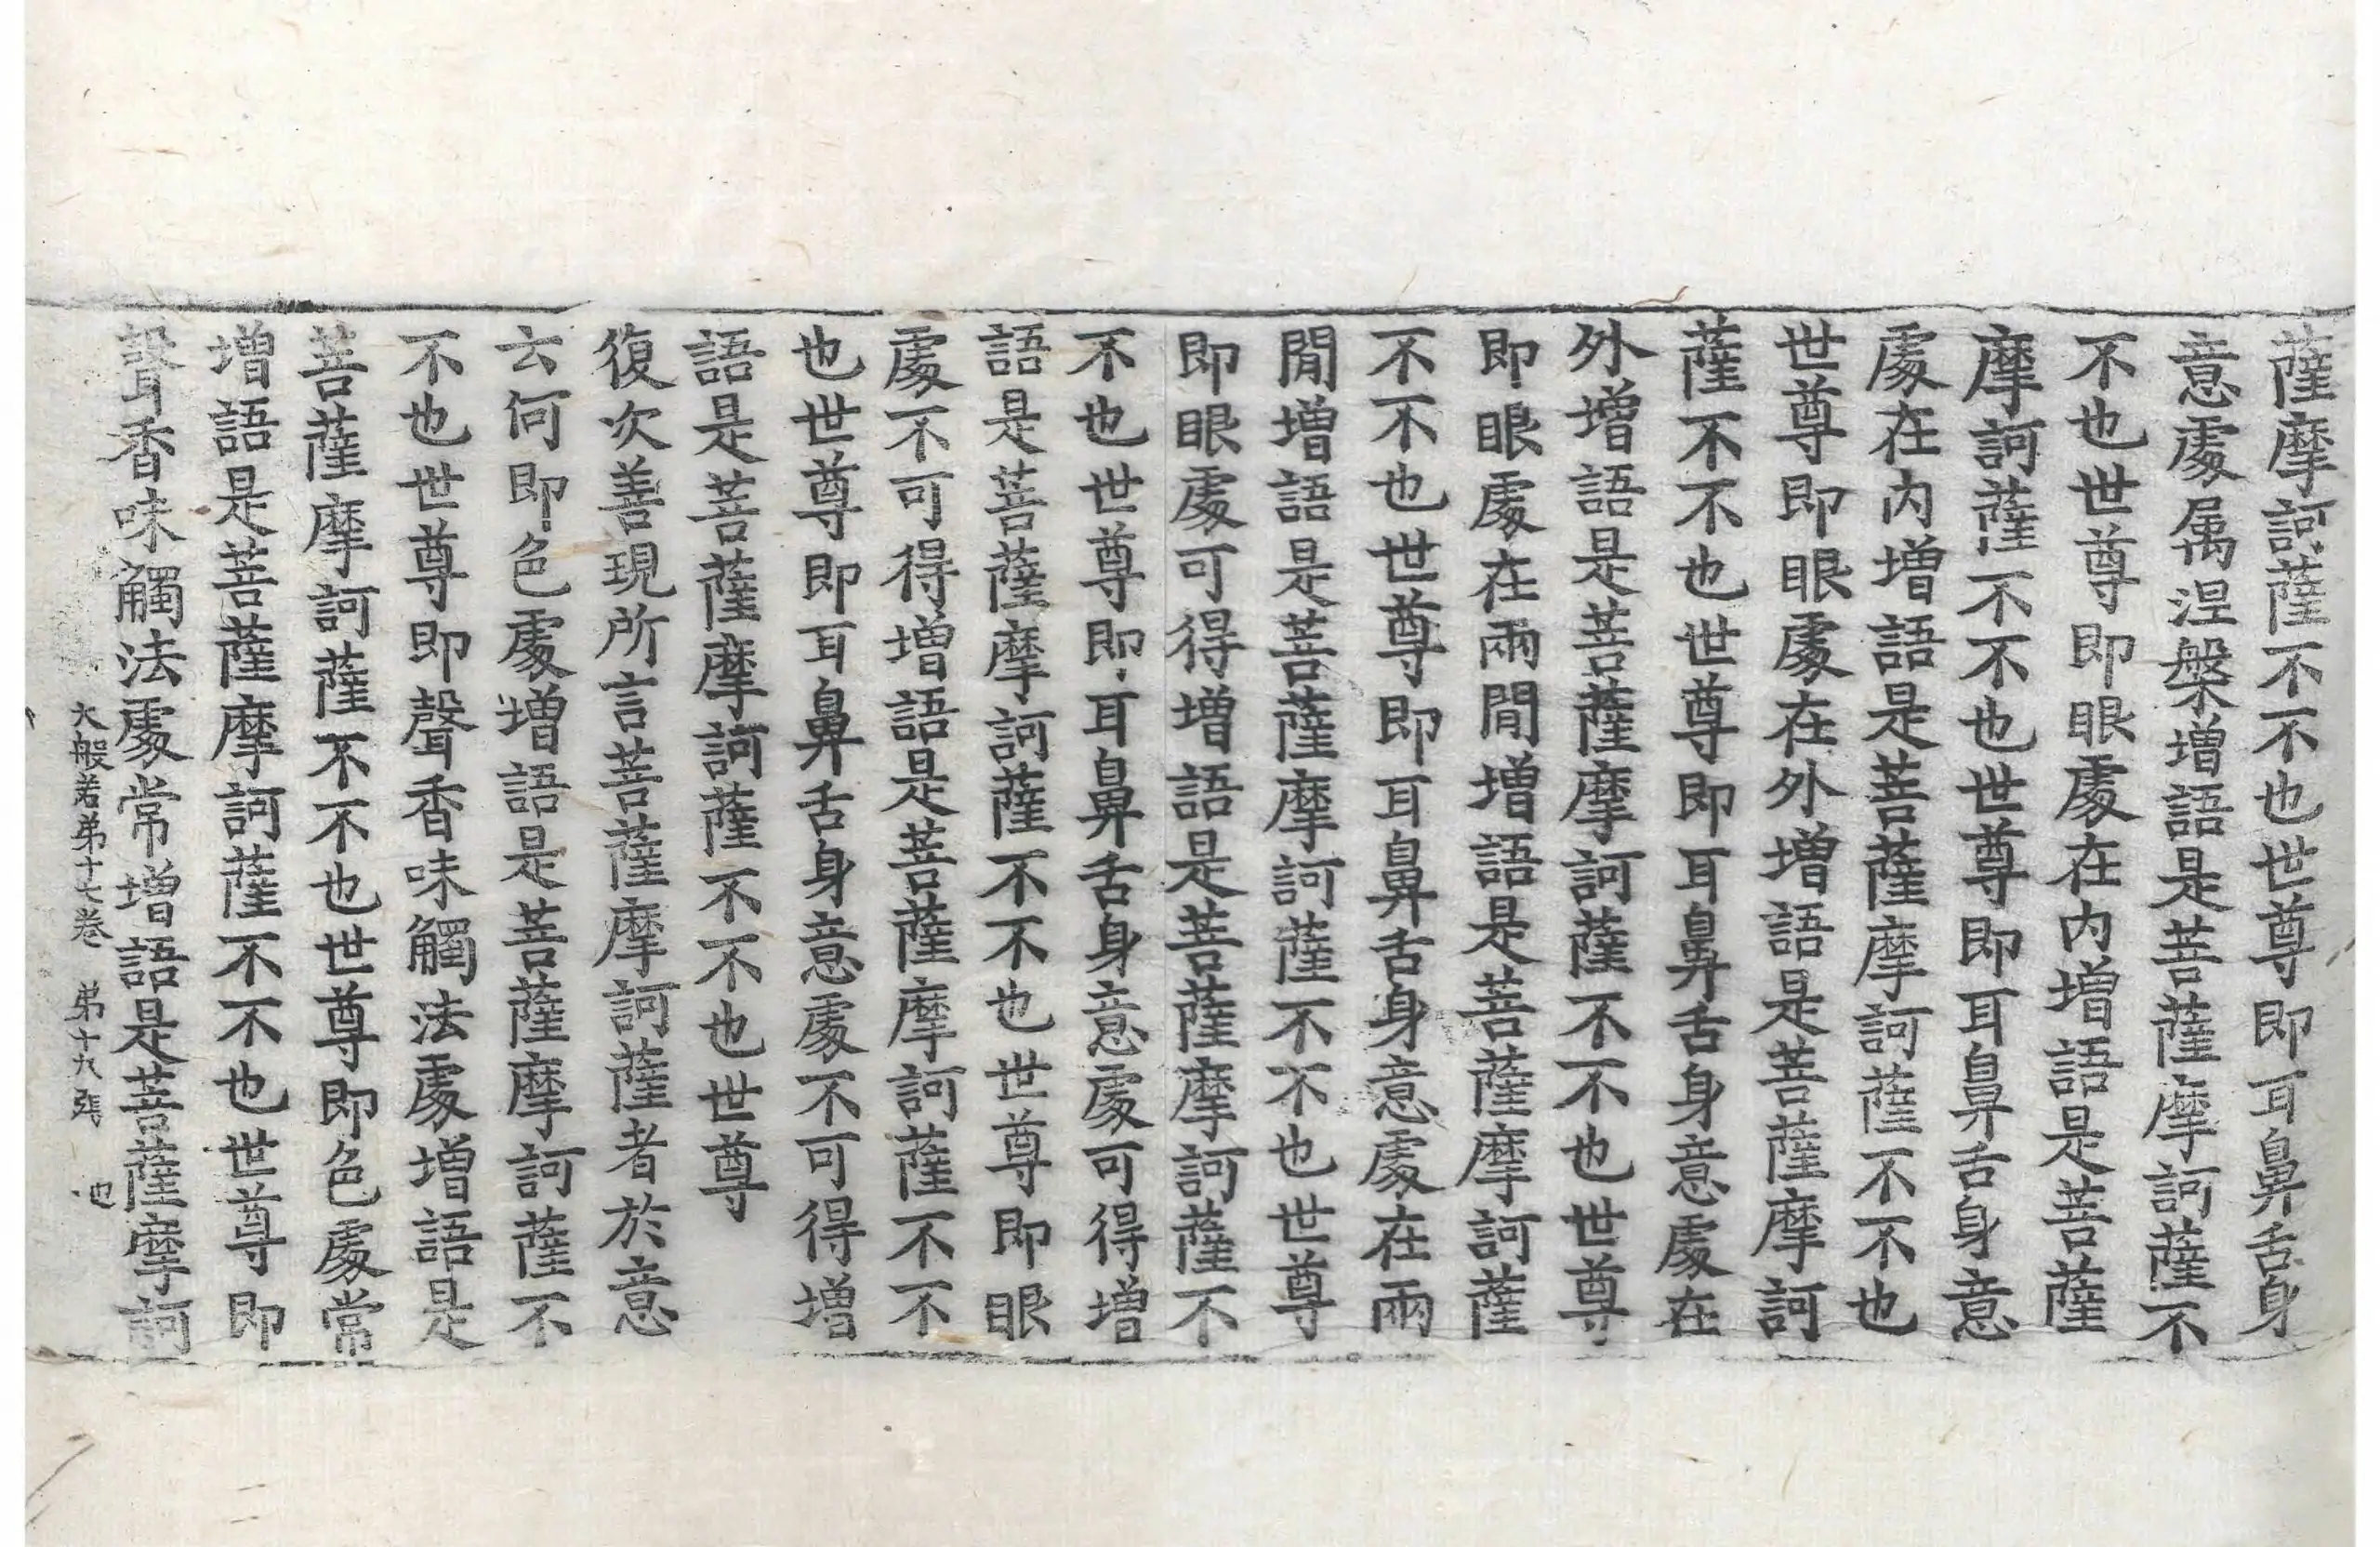 薩摩訶薩不不也世尊即耳鼻舌身
意處属涅槃增語是菩薩摩訶薩不
不也世尊即眼處在内增語是菩薩
摩訶薩不不也世尊即耳鼻舌身意
處在内增語是菩薩摩訶薩不不也
世尊即眼處在外增語是菩薩摩訶
薩不不也世尊即耳鼻舌身意處在
外增語是菩薩摩訶薩不不也世尊
即眼處在兩閒增語是菩薩摩訶薩
不不也世尊即耳鼻舌身意處在兩
閒增語是菩薩摩訶薩不不也世尊
即眼處可得增語是菩薩摩訶薩不
不也世尊即耳鼻舌身意處可得增
語是菩薩摩訶薩不不也世尊即眼
處不可得增語是菩薩摩訶薩不不
也世尊即耳鼻舌身意處不可得增
語是菩薩摩訶薩不不也世尊
復次善現所言菩薩摩訶薩者於意
云何即色處增語是菩薩摩訶薩不
不也世尊即聲香味觸法處增語是
菩薩摩訶薩不不也世尊即色處常
增語是菩薩摩訶薩不不也世尊即
聲香味觸法處常增語是菩薩摩訶
大般若弟十七卷 弟十九張 也